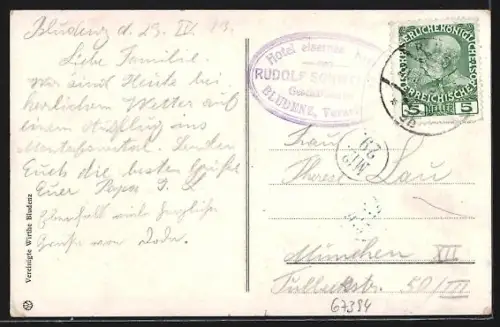 Bludenz d. 29. IV. 13.
Liebe Familie.
Wir sind Heute bei
herrlichem Wetter auf
einem Ausflug ins
Montafonertal. Senden
Euch die besten Grüße
Euer Papa
Ebenfalls viele herzliche
Grüße von
Vereinigte Wirthe Bludenz
Hotel eisernes
RUDOLF
BLUDENZ, Vorarl
KAISERLICHE KÖNIGLICHE
ÖSTERREICHISCHE POST
5 HELLER 5
Frau
Therese Lau
München XII
50/III
67394